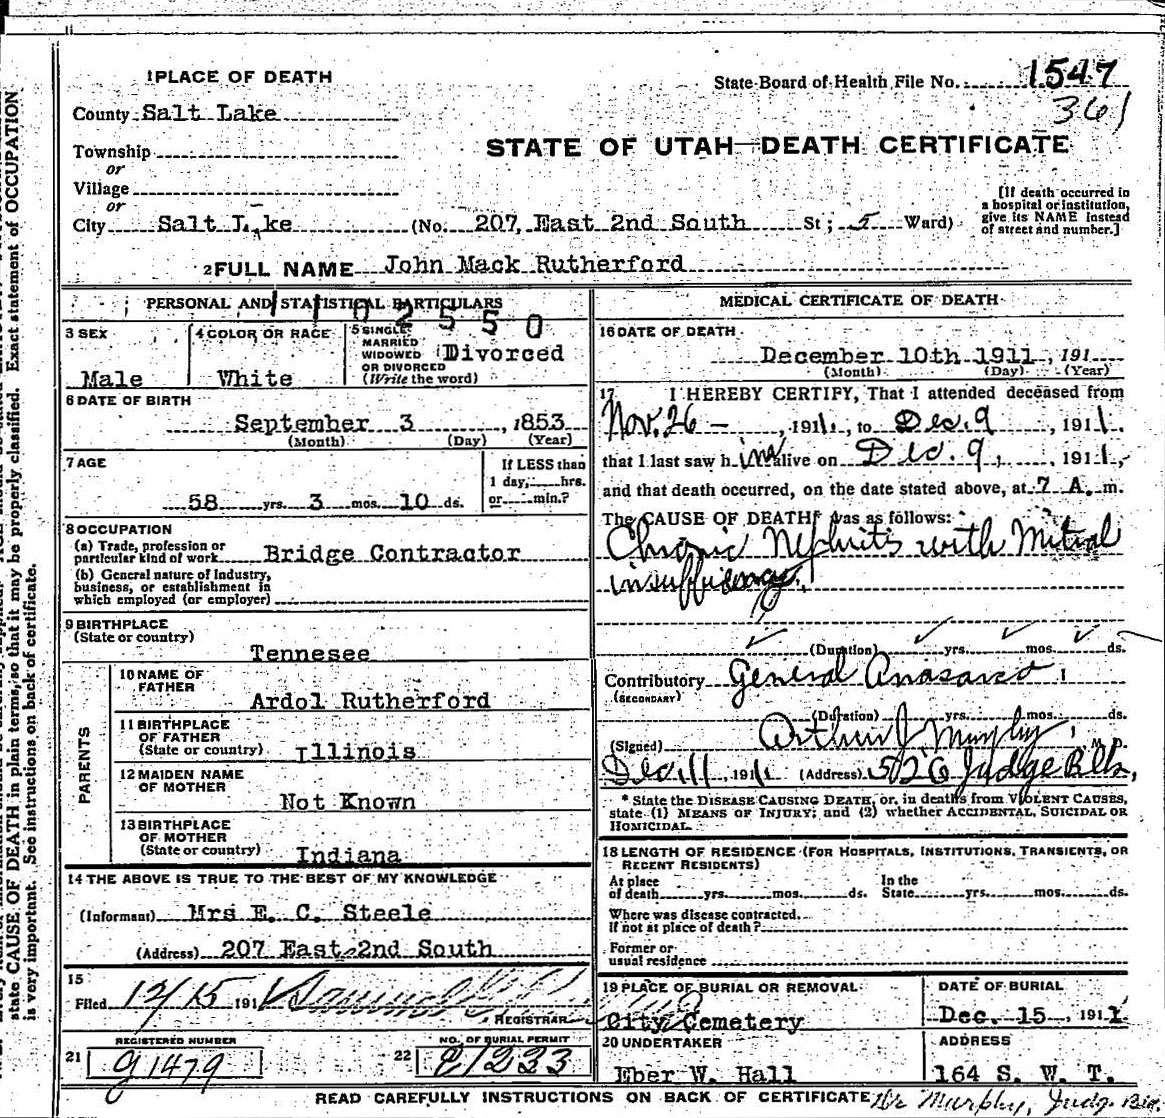 1 PLACE OF DEATH
State Board of Health File No. 1547
361
County Salt Lake
STATE OF UTAH—DEATH CERTIFICATE
Township
or
Village
or
City Salt Lake (No. 207 East 2nd South St; 5 Ward)
[If death occurred in
a hospital or institution,
give its NAME instead
of street and number.]
2 FULL NAME John Mack Rutherford
PERSONAL AND STATISTICAL PARTICULARS
1102550
3 SEX
Male
4 COLOR OR RACE
White
5 SINGLE
MARRIED
WIDOWED
OR DIVORCED
(Write the word)
Divorced
6 DATE OF BIRTH
September 3, 1853
(Month) (Day) (Year)
7 AGE
58 yrs. 3 mos. 10 ds.
If LESS than
1 day, hrs.
or min.?
8 OCCUPATION
(a) Trade, profession or
particular kind of work Bridge Contractor
(b) General nature of Industry,
business, or establishment in
which employed (or employer)
9 BIRTHPLACE
(State or country)
Tennesee
PARENTS
10 NAME OF
FATHER
Ardol Rutherford
11 BIRTHPLACE
OF FATHER
(State or country) Illinois
12 MAIDEN NAME
OF MOTHER
Not Known
13 BIRTHPLACE
OF MOTHER
(State or country) Indiana
14 THE ABOVE IS TRUE TO THE BEST OF MY KNOWLEDGE
(Informant) Mrs E. C. Steele
(Address) 207 East 2nd South
15
Filed 12/15 1911
REGISTRAR
REGISTERED NUMBER
21 g1479
NO. OF BURIAL PERMIT
22 C1233
MEDICAL CERTIFICATE OF DEATH
16 DATE OF DEATH
December 10th 1911, 191
(Month) (Day) (Year)
17 I HEREBY CERTIFY, That I attended deceased from
Nov. 26 — , 1911, to Dec. 9 , 1911.
that I last saw him alive on Dec. 9, , 1911,
and that death occurred, on the date stated above, at 7 A. m.
The CAUSE OF DEATH* was as follows:
Chronic Nephritis with Mitral
insufficiency.
(Duration) yrs. mos. ds.
Contributory General Anasarca
(SECONDARY)
(Duration) yrs. mos. ds.
(Signed) Arthur J Murphy, M. D.
Dec 11 1911 (Address) 502 6 Judge Bldg,
* State the DISEASE CAUSING DEATH, or, in deaths from VIOLENT CAUSES,
state (1) MEANS OF INJURY; and (2) whether ACCIDENTAL, SUICIDAL OR
HOMICIDAL.
18 LENGTH OF RESIDENCE (FOR HOSPITALS, INSTITUTIONS, TRANSIENTS, OR
RECENT RESIDENTS)
At place
of death yrs. mos. ds.
In the
State yrs. mos. ds.
Where was disease contracted,
If not at place of death?
Former or
usual residence
19 PLACE OF BURIAL OR REMOVAL
City Cemetery
DATE OF BURIAL
Dec. 15, 1911
20 UNDERTAKER
Eber W. Hall
ADDRESS
164 S. W. T.
READ CAREFULLY INSTRUCTIONS ON BACK OF CERTIFICATE
Dr Murphy, Judge Bldg.
state CAUSE OF DEATH in plain terms, so that it may be properly classified. Exact statement of OCCUPATION
is very important. See instructions on back of certificate.